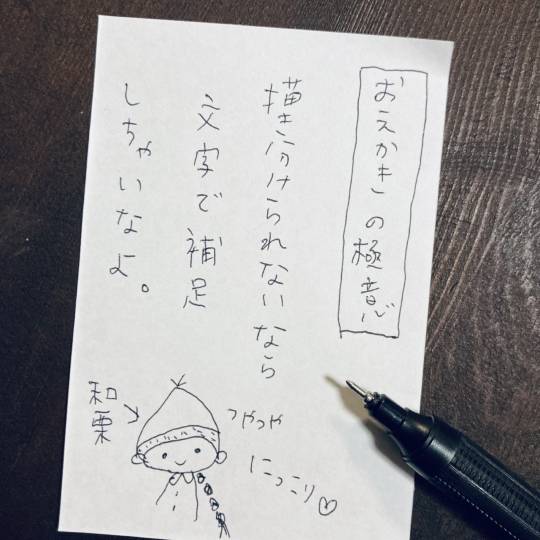 おえかきの極意
描き分けられないなら
文字で補足
しちゃいなよ。
和栗
つやつや
にっこり♡